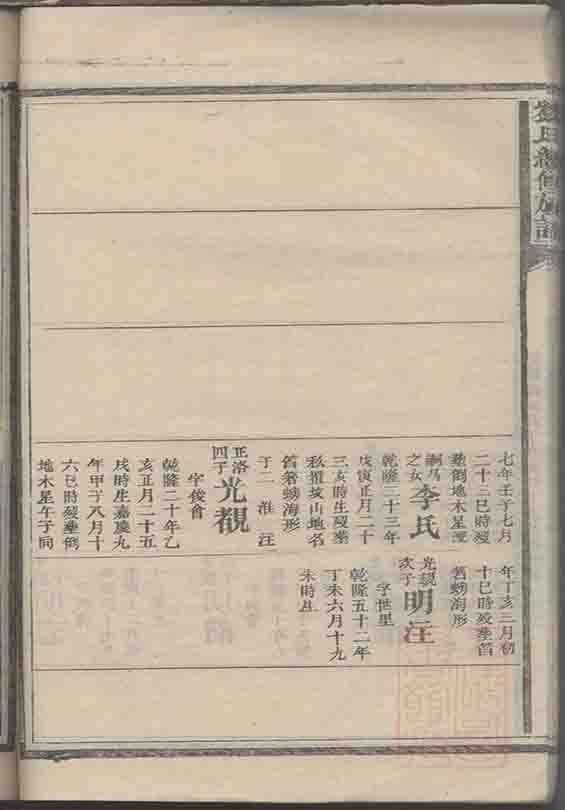 氏續修族譜
七年壬子七月
二十三巳時歿
塟倒地木星形
嗣馬之女李氏
乾隆二十三年
戊寅正月二十
三亥時生歿塟
山地名
舊箬蝴海形
子二 淮 注
正洛四子光覩
字俊會
乾隆二十年乙
亥正月二十五
戌時生嘉慶九
年甲子八月十
六巳時歿塟倒
地木星午子向
年丁亥三月初
十巳時歿塟舊
箬蝴海形
光覩次子明注
字世星
乾隆五十二年
丁未六月十九
未時生